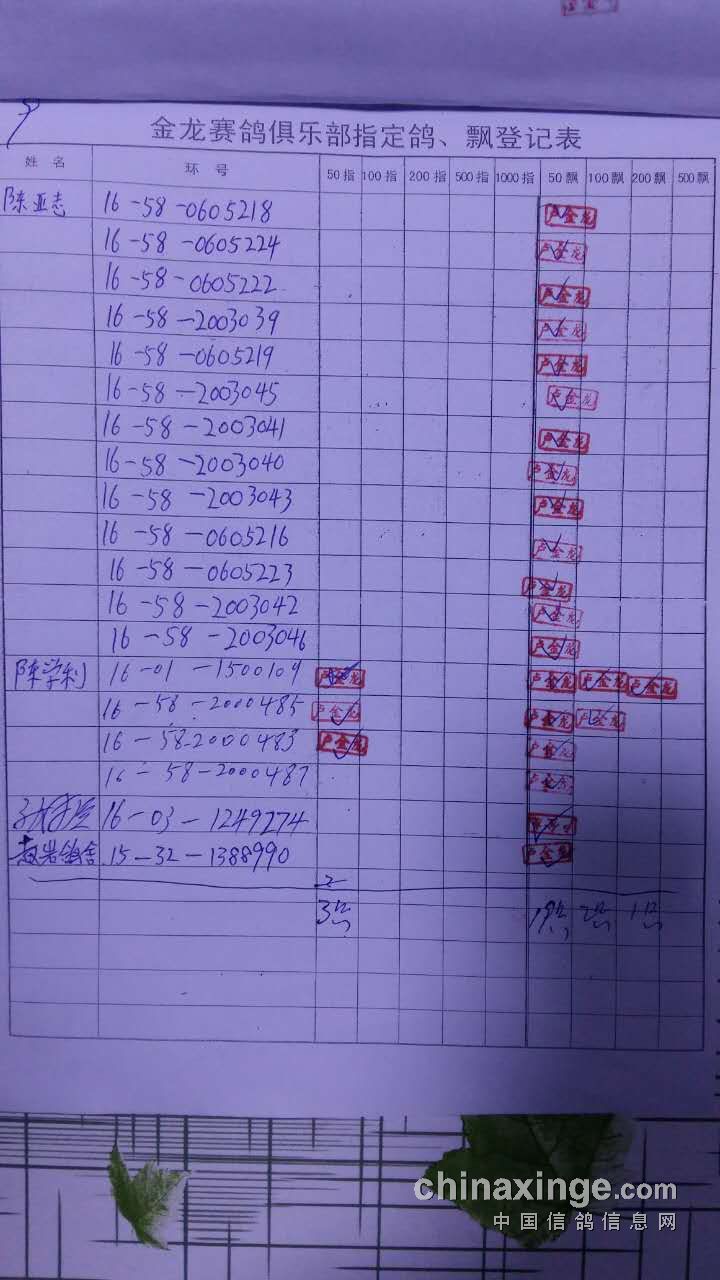 金龙赛鸽俱乐部指定鸽、飘登记表
姓名 环号 50指 100指 200指 500指 1000指 50飘 100飘 200飘 500飘
陈亚志 16-58-0605218 卢金龙
16-58-0605224 卢金龙
16-58-0605222 卢金龙
16-58-2003039 卢金龙
16-58-0605219 卢金龙
16-58-2003045 卢金龙
16-58-2003041 卢金龙
16-58-2003040 卢金龙
16-58-2003043 卢金龙
16-58-0605216 卢金龙
16-58-0605223 卢金龙
16-58-2003042 卢金龙
16-58-2003046 卢金龙
陈学利 16-01-1500109 卢金龙 卢金龙 卢金龙 卢金龙
16-58-2000485 卢金龙 卢金龙 卢金龙
16-58-2000483 卢金龙 卢金龙
16-58-2000487 卢金龙
16-03-1249274
15-32-1388990 卢金龙
3 19 2 1
chinaxinge.com
中国信鸽信息网